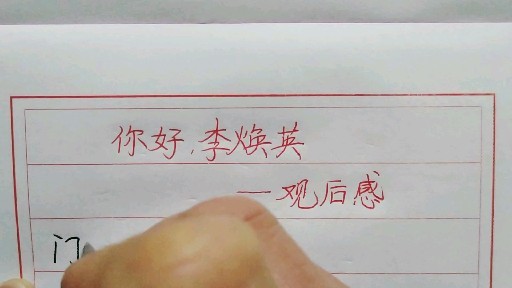 你好,李焕英
—观后感
门